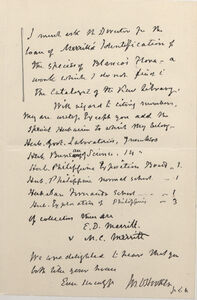 I must ask the Director for the
loan of Merrill's Identification of
the Species of Blanco's Flora - a
work which I do not find in
the Catalogue of the Kew Library.
With regard to citing numbers,
they are useless except you add the
special Herbarium to which they belong
Herb. Govt. Laboratories,
Herb. Bureau of Science. 14
Herb. Philippine Exposition Board - 1
Herb. Philippine Normal School - 1
Herb. School - 1
Herb. of Philippines - 3
of collectors there are
E.D. Merrill
& M.C. Merritt
We were delighted to hear that you
both like your house
Ever